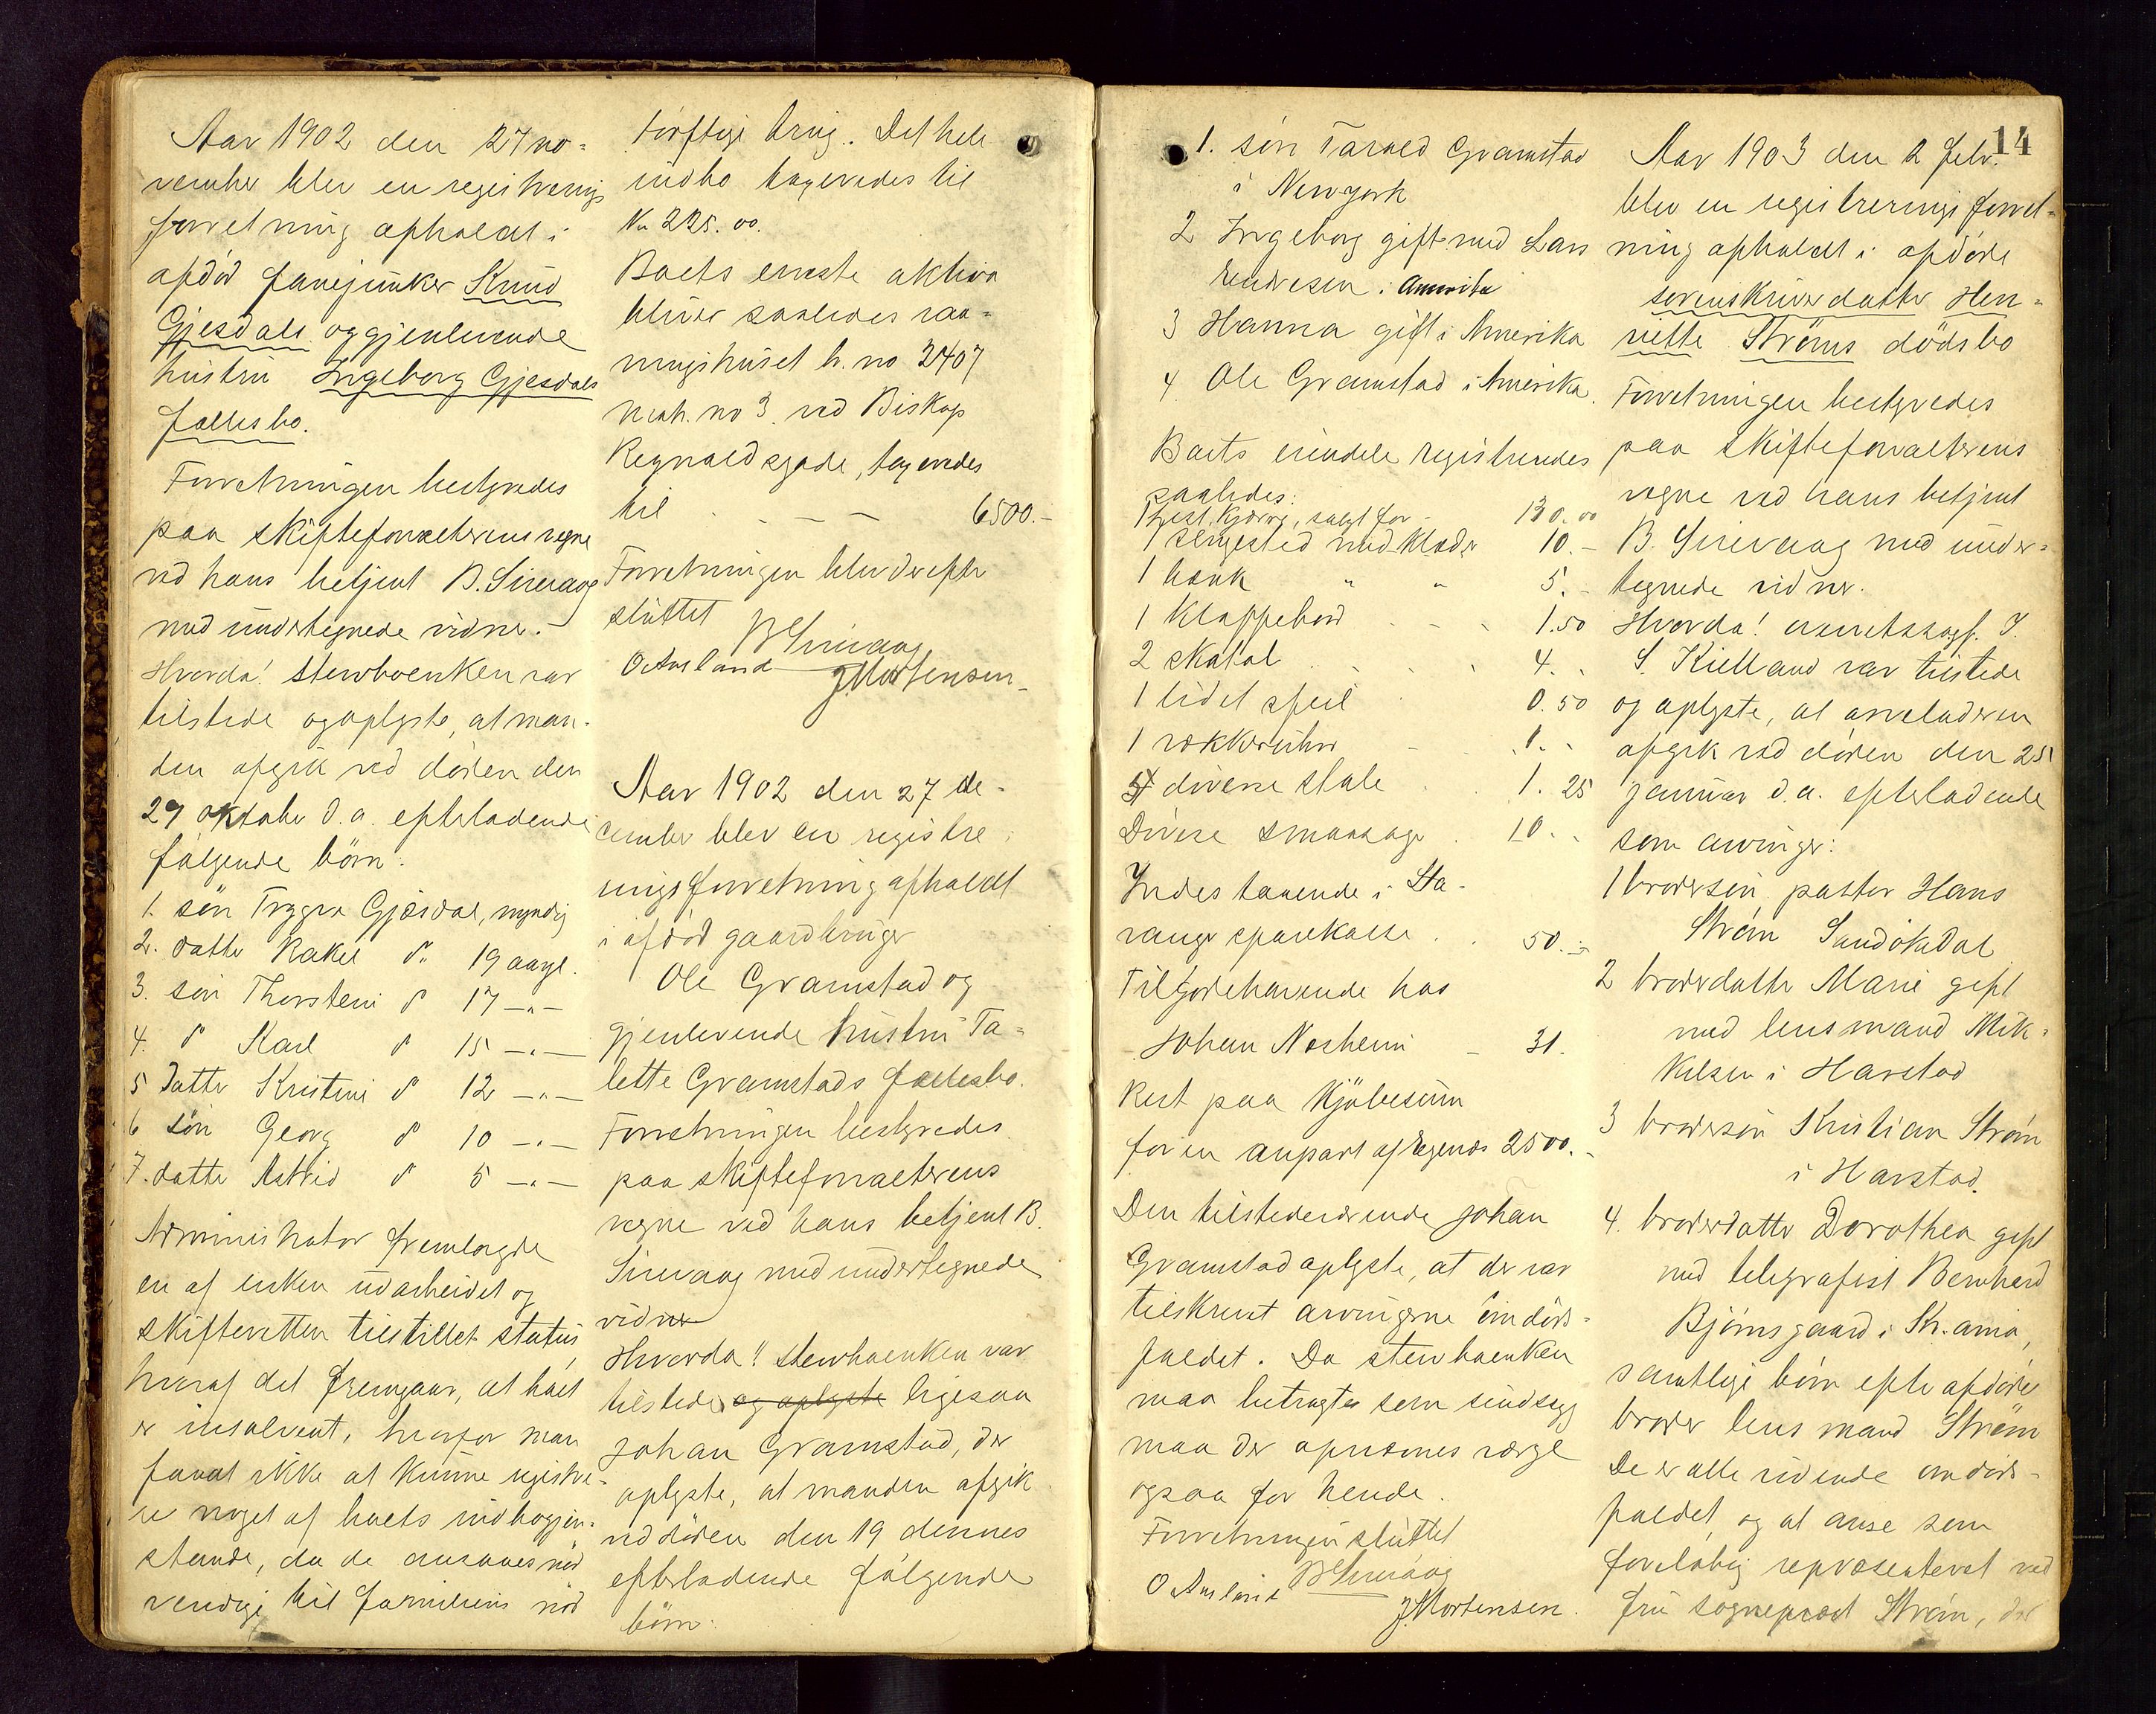 Aar 1902 den 27 no-
vember blev en registrerings
forretning afholdt i
afdød fanejunker Knud
Gjesdals og gjenlevende
hustru Ingeborg Gjesdals
fællesbo.
Forretningen bestyredes
paa skifteforvalterens vegne
ved hans betjent B. Sirevaag
med undertegnede vidner.
Hvorda! stervboenken var
tilstede og oplyste, at man-
den afgik ved døden den
29 oktober d.a. efterladende
følgende børn:
1. søn Trygve Gjesdal, myndig
2. datter Rakel do 19 aar gl.
3. søn Thorstein do 17 -"-
4. do Karl do 15 -"-
5 datter Kristine do 12 -"-
6 søn Georg do 10 -"-
7. datter Astrid do 5 -"-
Administrator fremlagde
en af enken udarbeidet og
skifteretten tilstillet status,
hvoraf det fremgaar, at boet
er insolvent, hvorfor man
fandt ikke at kunne registre-
re noget af boets indbogjen-
stande, da de ansaaes nød
vendige til familiens nød
tørftige brug. Det hele
indbo taxeredes til
Kr 225.00.
Boets eneste aktiva
bliver saaledes vaa-
ningshuset b. no 2407
matr. no 3 ved Biskop
Regnaldsgade, taxeredes
til - - - 6500.-
Forretningen blev derefter
sluttet
B Sirevaag
O Aurland J Mortensen
Aar 1902 den 27 de-
cember blev en registre
ringsforretning afholdt
i afdød gaardbruger
Ole Gramstad og
gjenlevende hustru Ta-
lette Gramstads fællesbo.
Forretningen bestyredes
paa skifteforvalterens
vegne ved hans betjent B.
Sirevaag med undertegnede
vidner
Hvorda!! stervboenken var
tilstede og oplyste ligesaa
Johan Gramstad, der
oplyste, at manden afgik
ved døden den 19 dennes
efterladende følgende
børn:
14
1. søn Tarald Gramstad
i Newyork
2 Ingeborg gift med Lars
Endresen i Amerika
3 Hanna gift i Amerika
4 Ole Gramstad i Amerika.
Boets eiendele registreredes
saaledes:
1 hest, kjærre, solgt for - 130.00
1 sengested med klæder 10.-
1 bænk " " 5.-
1 klappebord - - - 1.50
2 skatol - - - 4.-
1 lidet speil 0.50
1 vækkeruhr - - 1.-
4 diverse stole 1.25
Diverse smaasager 10.-
Indestaaende i Sta-
vanger sparekasse 50.-
Tilgodehavende hos
Johan Norheim - 31.
Rest paa kjøbesum
for en anpart af Egenæs 2500.-
Den tilstedeværende Johan
Gramstad oplyste, at der var
tilskrevet arvingerne om døds-
faldet. Da stervboenken
maa betragtes som sindssyg
maa der opnævnes værge
ogsaa for hende.
Forretningen sluttet
B Sirevaag
O Aurland J Mortensen.
Aar 1903 den 2 febr.
blev en registreringsforret-
ning afholdt i afdøde
sorenskriverdatter Hen-
riette Strøms dødsbo
Forretningen bestyredes
paa skifteforvalterens
vegne ved hans betjent
B. Sirevaag med under-
tegnede vidner.
Hvorda! overretssagf. J.
S. Kielland var tilstede
og oplyste, at arveladeren
afgik ved døden den 25
januar d.a. efterladende
som arvinger:
1 brodersøn, pastor Hans
Strøm Sandøkedal
2 broderdatter Marie gift
med lensmand Mik-
kelsen i Harstad
3 brodersøn Kristian Strøm
i Harstad.
4. broderdatter Dorothea gift
med telegrafist Bernhard
Bjørnsgaard i Kr.ania,
samtlige børn efter afdøde
broder lensmand Strøm
De er alle vidende om døds-
faldet, og at anse som
foreløbig repræsenteret ved
fru sogneprest Strøm, der